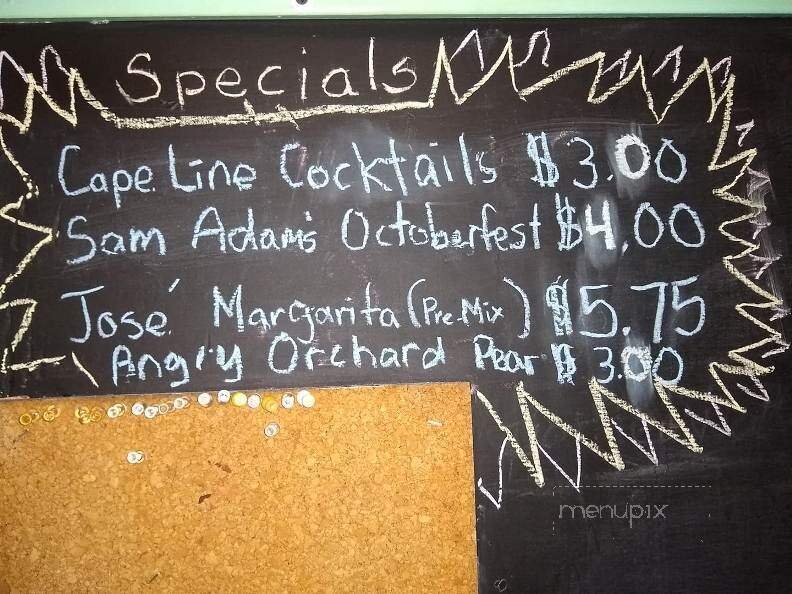 Specials
Cape Line Cocktails $3.00
Sam Adam's Octoberfest $4.00
José Margarita (Pre-Mix) $5.75
Angry Orchard Pear $3.00
menupix